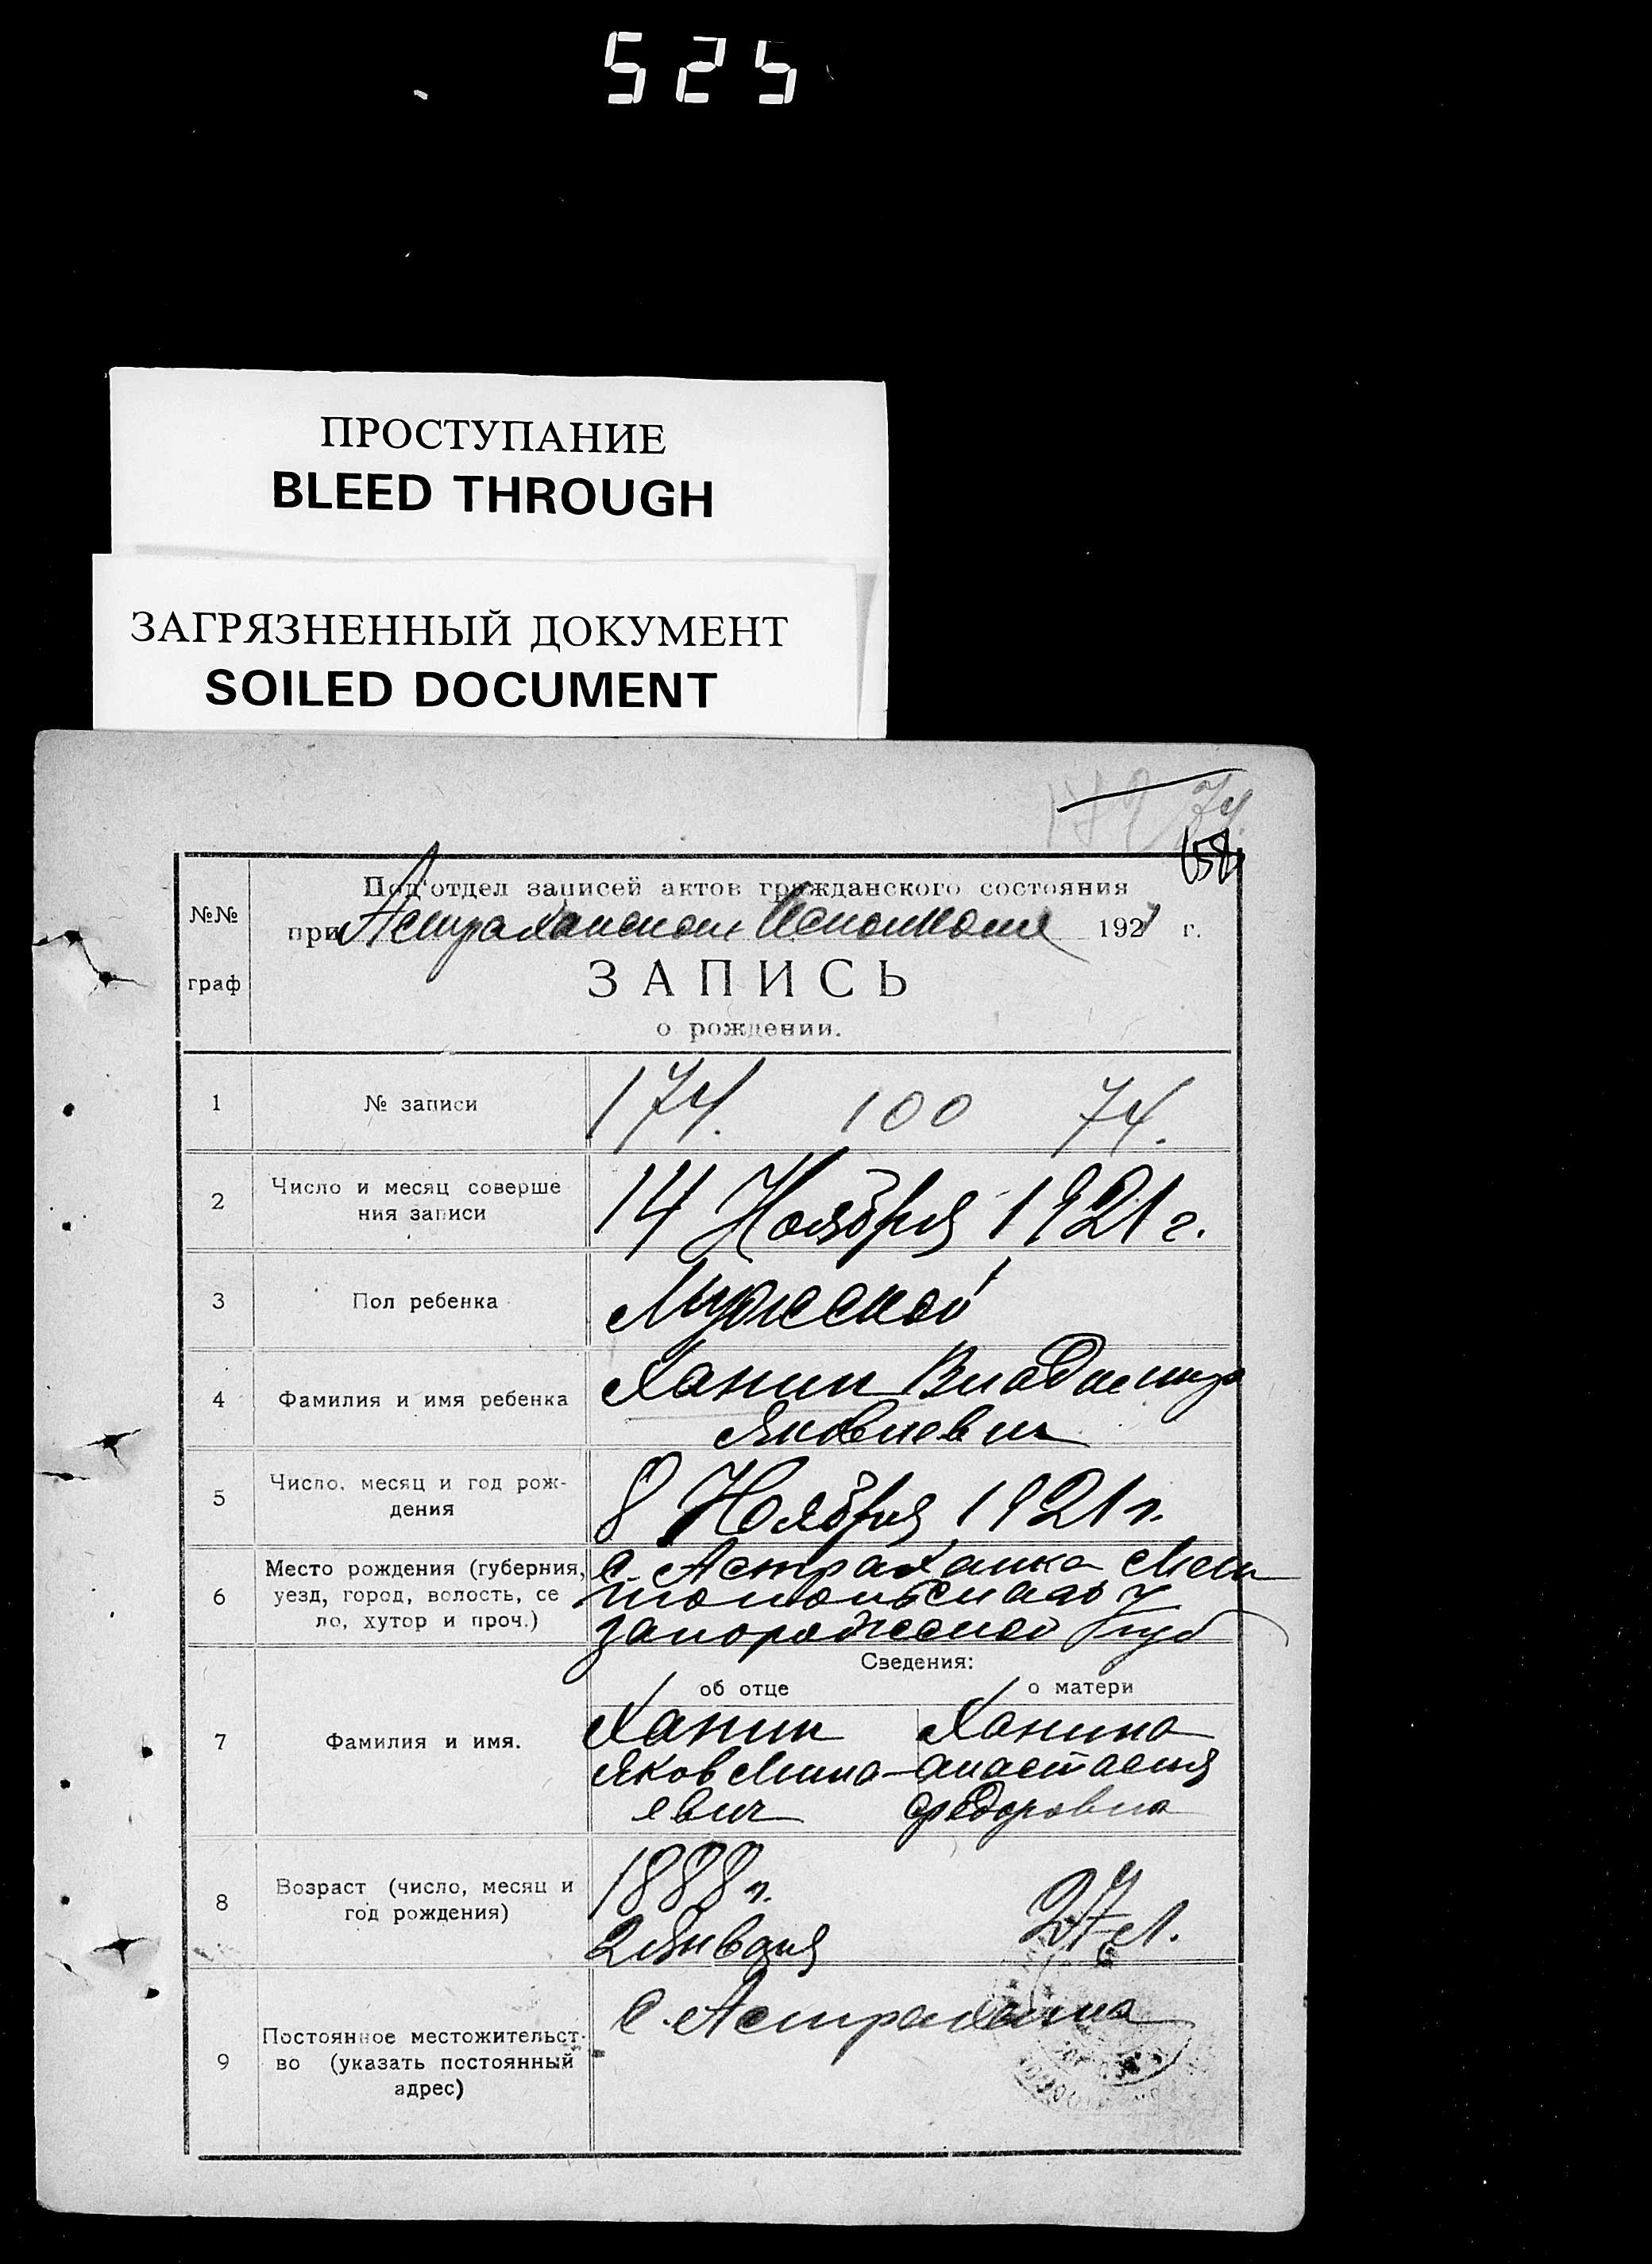 525
ПРОСТУПАНИЕ
BLEED THROUGH
ЗАГРЯЗНЕННЫЙ ДОКУМЕНТ
SOILED DOCUMENT
74.
158
№№ граф
Подотдел записей актов гражданского состояния
при Астраханском Исполкоме 1921 г.
ЗАПИСЬ
о рождении.
1 № записи 174. 100 74.
2 Число и месяц соверше
ния записи
14 Ноября 1921 г.
3 Пол ребенка Мужской
4 Фамилия и имя ребенка Ханин Владимир
Яковлевич
5 Число, месяц и год рож-
дения
8 Ноября 1921 г.
6 Место рождения (губерния,
уезд, город, волость, се
ло, хутор и проч.)
с. Астраханка Мели
топольскаго у
Запорожской губ
Сведения:
об отце о матери
7 Фамилия и имя.
Ханин Ханина
Яков Мина- Анастасия
евич Федоровна
8 Возраст (число, месяц и
год рождения)
1888 г.
2 Января 27 л.
9 Постоянное местожительст-
во (указать постоянный
адрес)
с. Астраханка